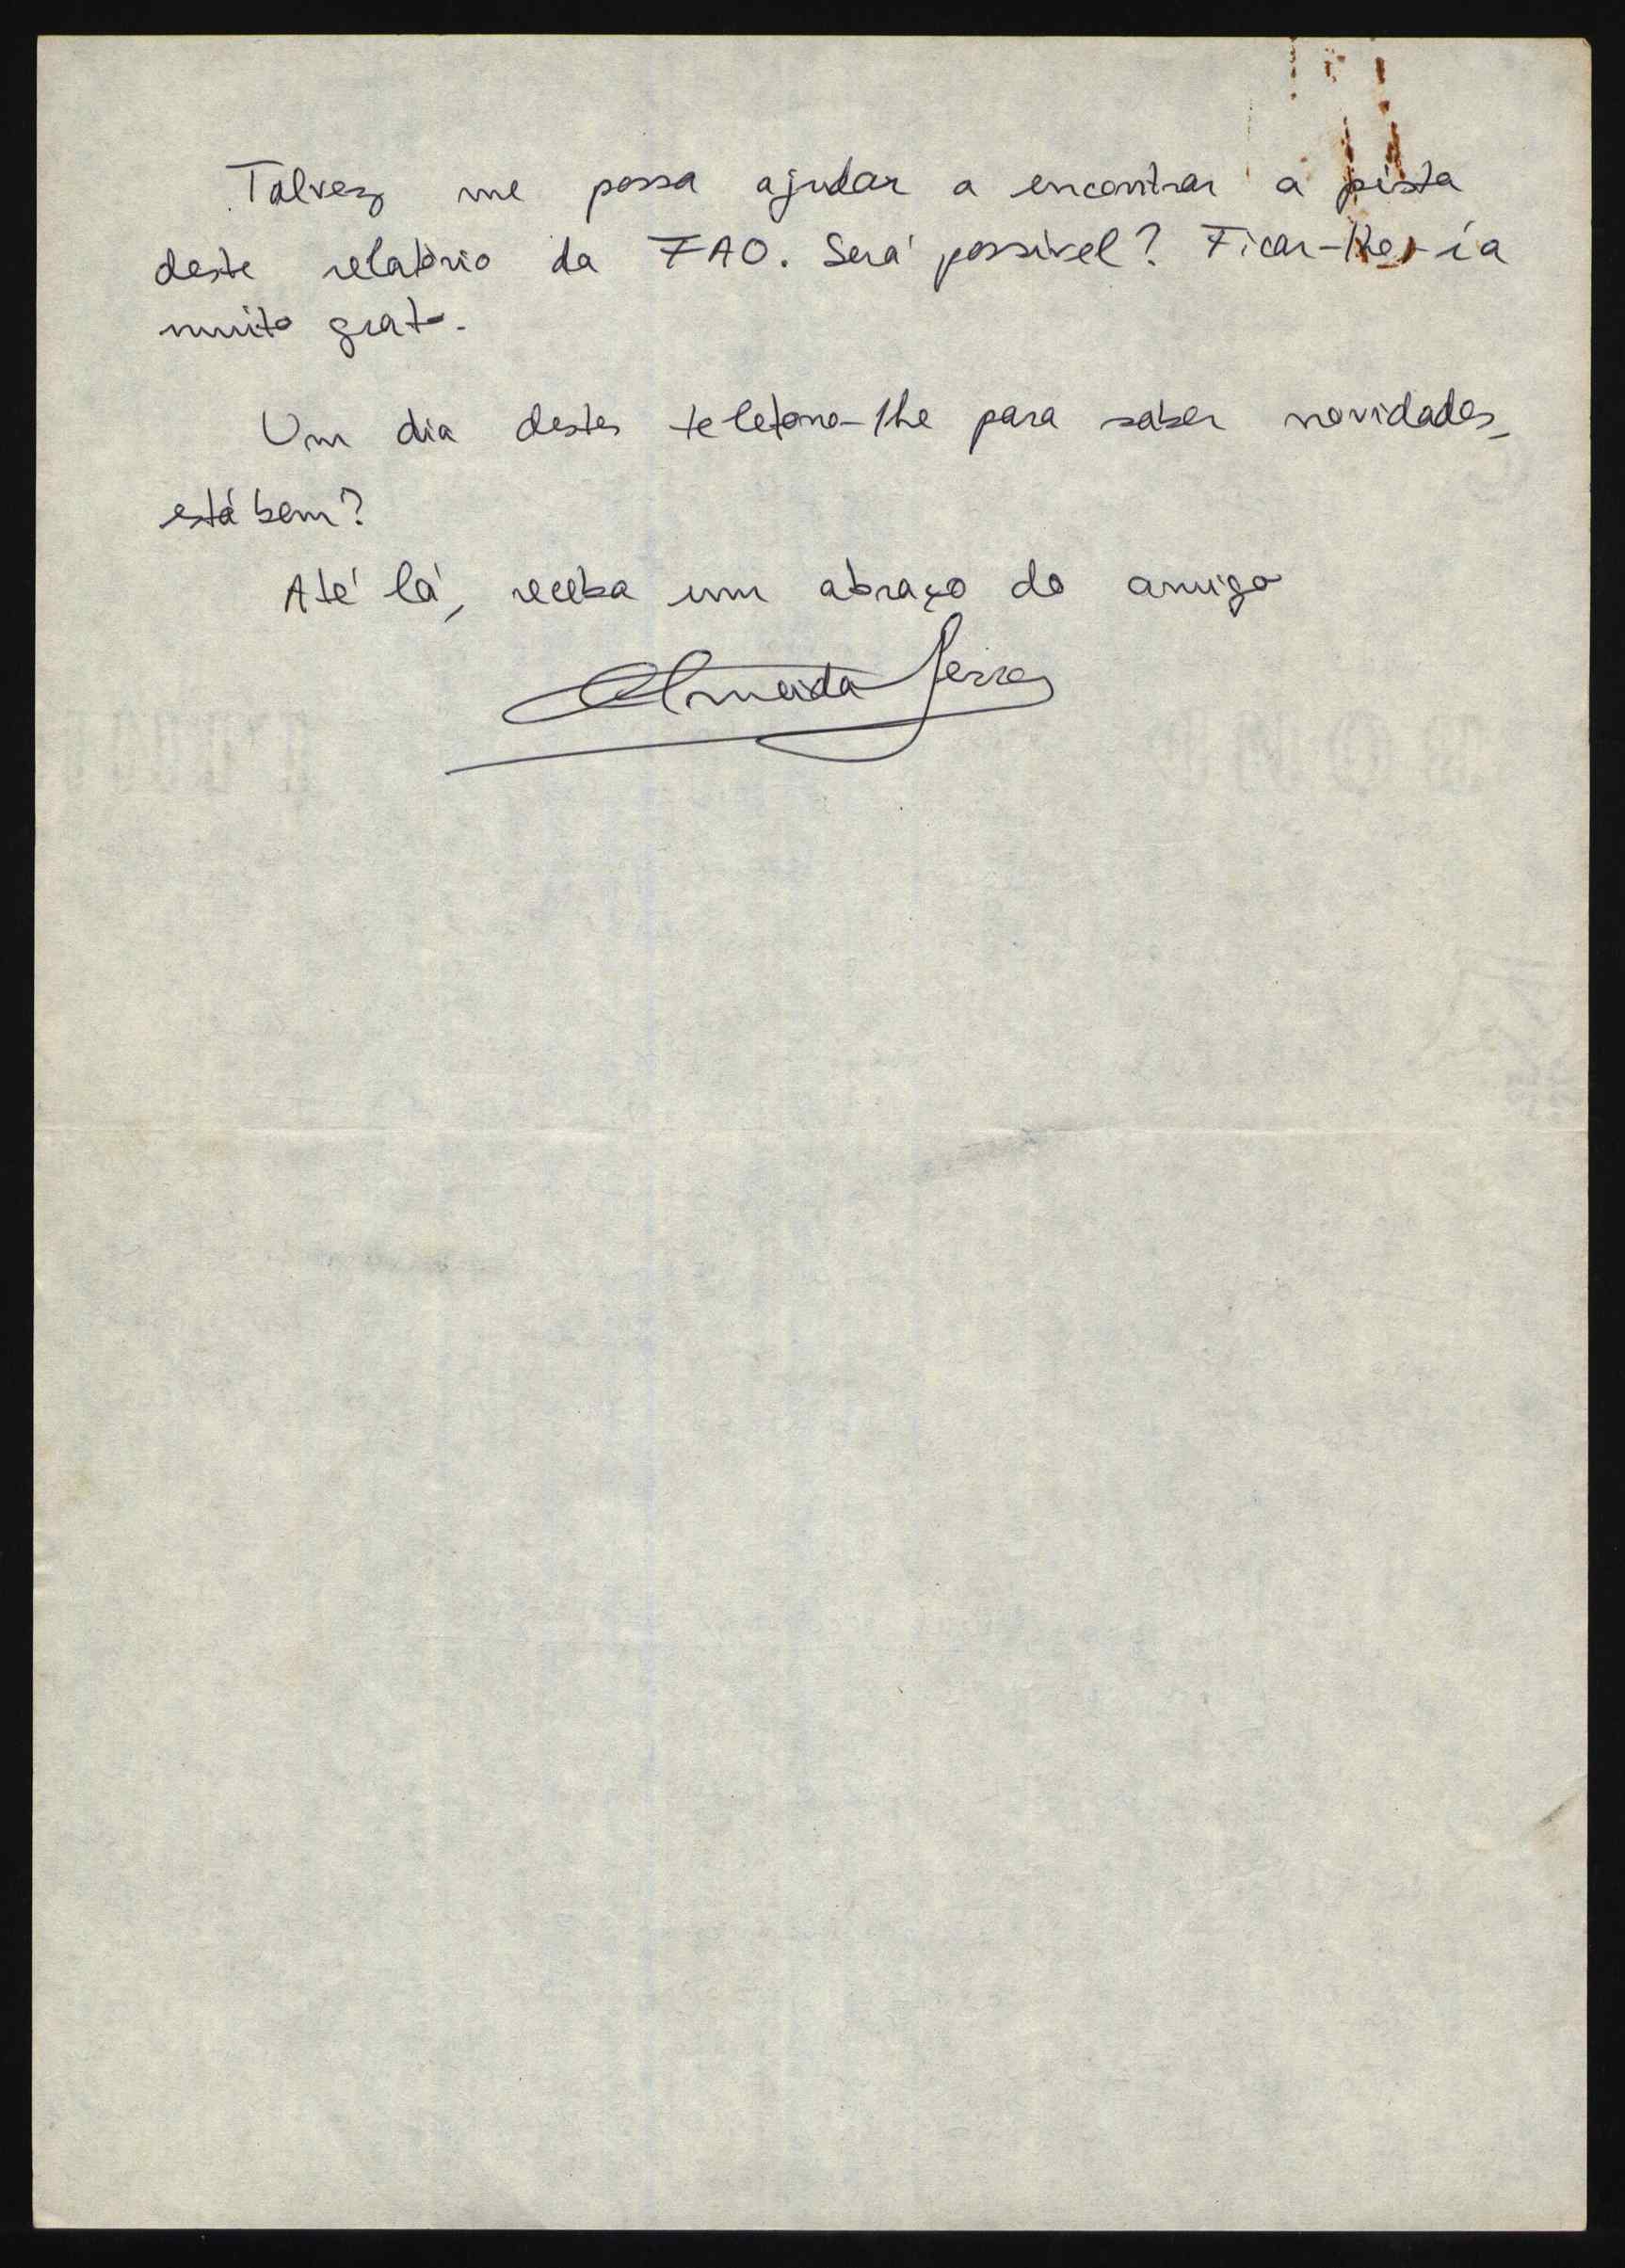 Talvez me possa ajudar a encontrar a pista
deste relatório da FAO. Será possível? Ficar-lhe-ia
muito grato.
Um dia destes telefono-lhe para saber novidades,
está bem?
Até lá, receba um abraço do amigo
Almeida Serra